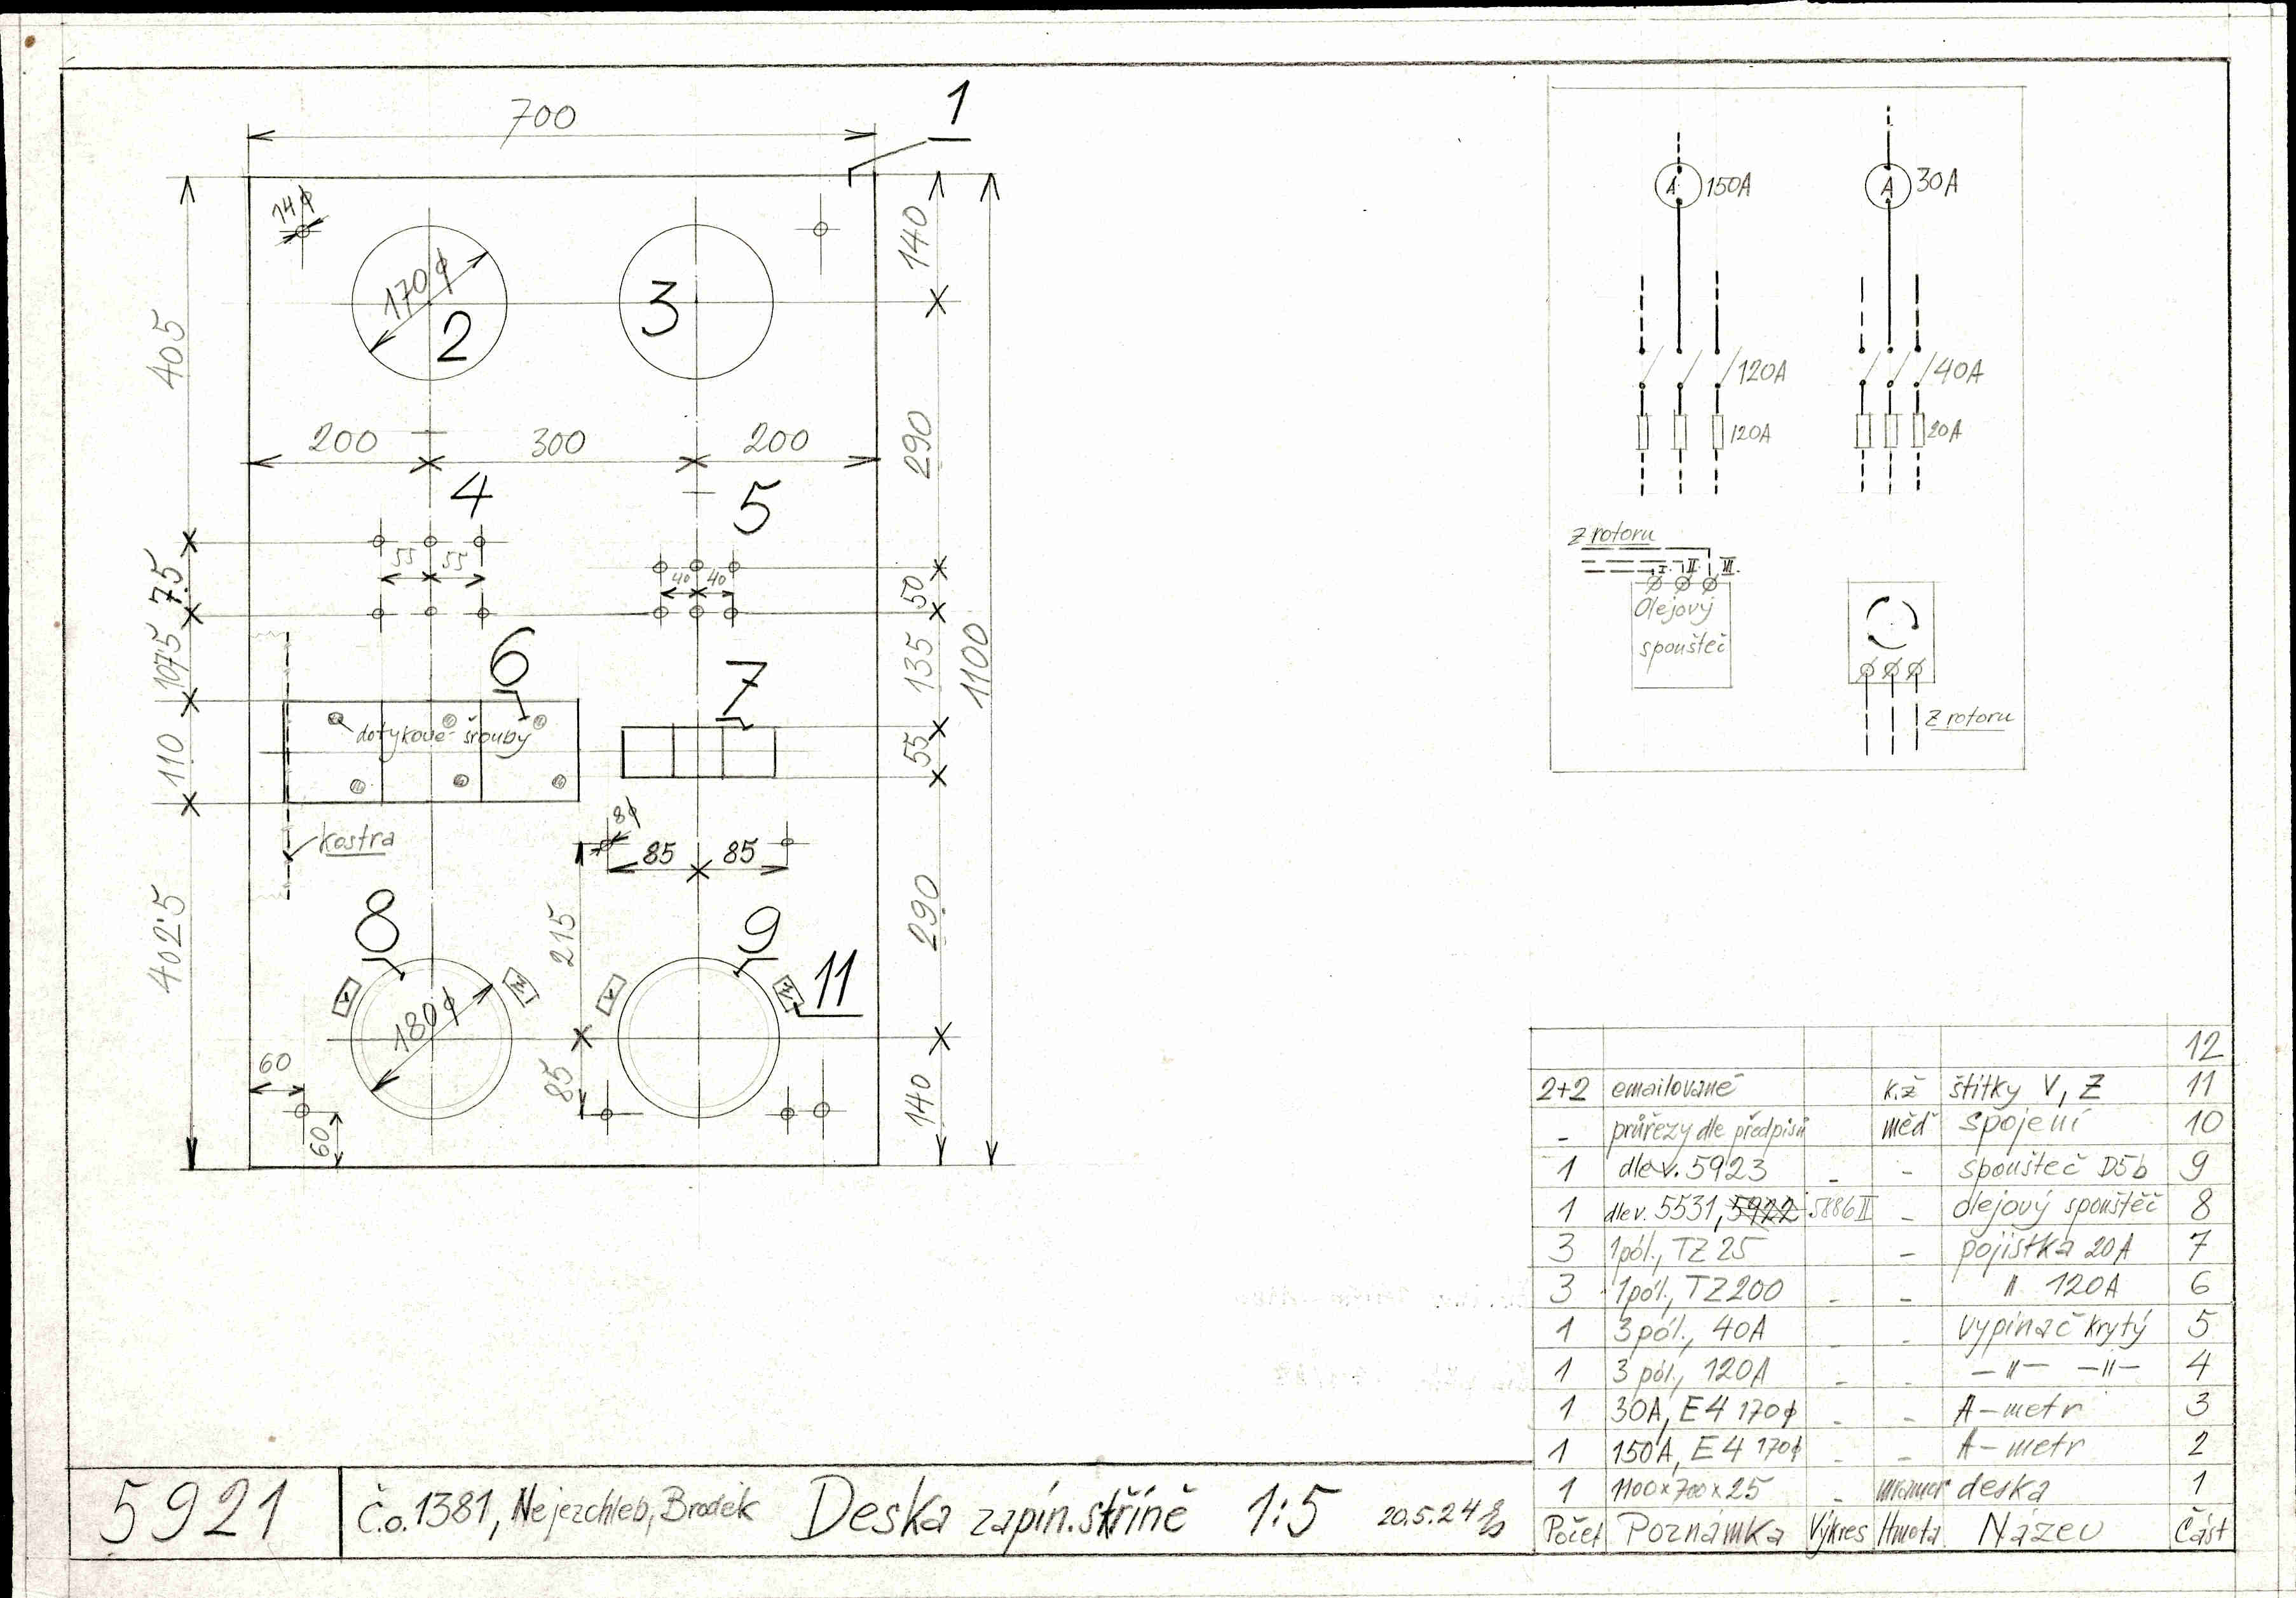 700
1
14φ
170φ
2
3
140
405
200
300
200
290
4
5
55 55
40 40
75
50
107'5
135
1100
6
7
dotykové šrouby
110
55
kostra
8φ
85 85
402'5
215
290
8
9
11
V
V
180φ
60
60
85
140
A 150A
A 30A
120A
40A
120A
20A
Z rotoru
I. II III.
Olejový
spoušteč
Z rotoru
12
2+2 emailované k.ž štítky V, Z 11
- průřezy dle předpisů měď spojení 10
1 dle v. 5923 - - spoušteč D5b 9
1 dle v. 5531, 5922 5886 II - olejový spouštěč 8
3 1pól., TZ 25 - pojistka 20A 7
3 1pól., TZ 200 - - " 120A 6
1 3 pól., 40A - vypinač krytý 5
1 3 pól., 120A - - -"- -"- 4
1 30A, E4 170φ - - A-metr 3
1 150A, E4 170φ - - A-metr 2
1 1100x700x25 - mramor deska 1
Počet Poznámka Výkres Hmota Název Část
5921
č.o. 1381, Nejezchleb, Brodek Deska zapín. stříně 1:5 20.5.24